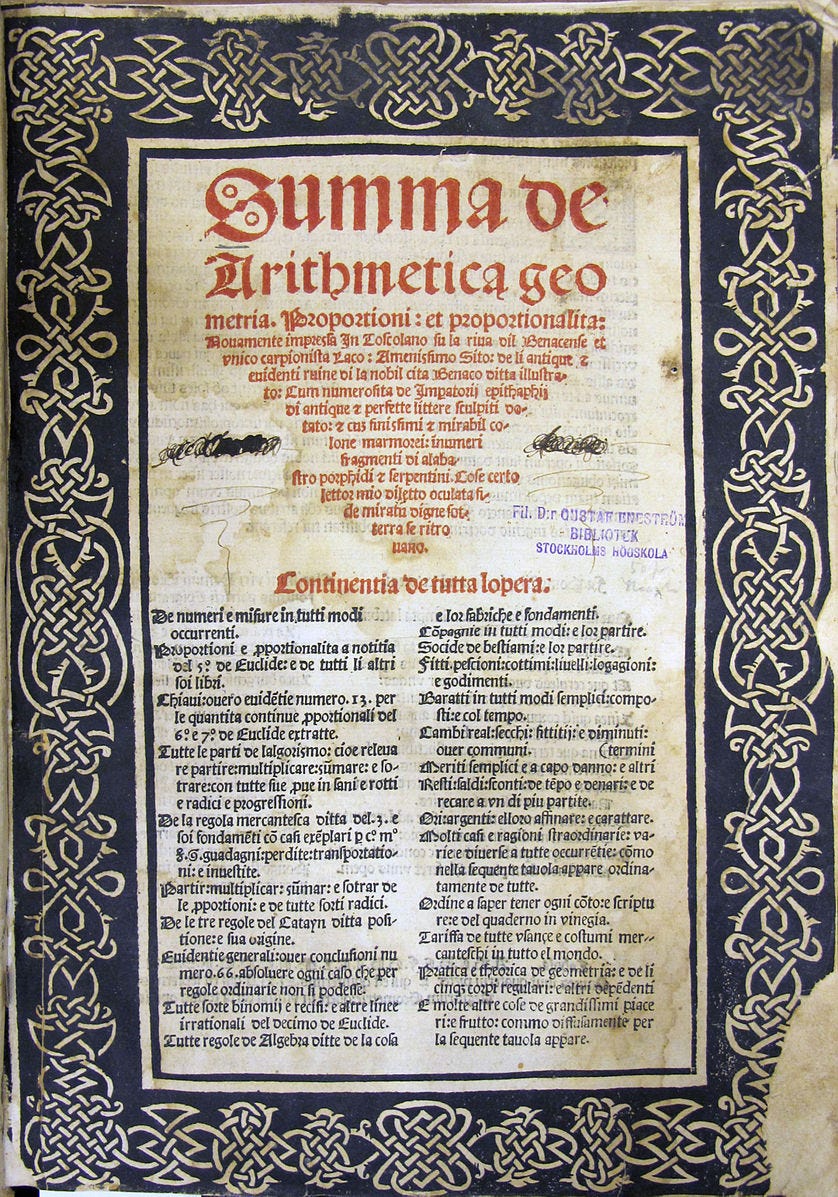 Summa de
Arithmetica geo
metria. Proportioni: et proportionalita:
Nouamente impressa In Toscolano su la riua dil Benacense et
vnico carpionista Laco: Amenissimo Sito: de li antique ⁊
euidenti ruine di la nobil cita Benaco ditta illustra-
to: Cum numerosita de Impatorij epithaphij
di antique ⁊ perfette littere sculpiti do-
tato: ⁊ cus finissimi ⁊ mirabil co-
lone marmorei: inumeri
fragmenti di alaba-
stro porphidi ⁊ serpentini. Cose certo
lettor mio diletto oculata fi-
de miratu digne sot-
terra se ritro
uano.
Fil. D:r GUSTAF ENESTRÖM
BIBLIOTEK
STOCKHOLMS HÖGSKOLA
Continentia de tutta lopera.
De numeri e misure in tutti modi
occurrenti.
Proportioni e ꝓportionalita a notitia
del 5º. de Euclide: e de tutti li altri
soi libri.
Chiaui: ouero euidẽtie numero. 13. per
le quantita continue ꝓportionali del
6º e 7º. de Euclide extratte.
Tutte le parti de lalgorismo: cioe releua
re partire: multiplicare: sũmare: e so-
trare: con tutte sue ꝓue in sani e rotti
e radici e progressioni.
De la regola mercantesca ditta del. 3. e
soi fondamẽti cõ casi exẽplari ꝑ cº. mº
8. G. guadagni: perdite: transportatio-
ni: e inuestite.
Partir: multiplicar: sũmar: e sotrar de
le ꝓportioni: e de tutte sorti radici.
De le tre regole del Catayn ditta posi-
tione: e sua origine.
Euidentie generali: ouer conclusioni nu
mero. 66. absoluere ogni caso che per
regole ordinarie non si podesse.
Tutte sorte binomij e recisi: e altre linee
irrationali del decimo de Euclide.
Tutte regole de Algebra ditte de la cosa
e lor fabriche e fondamenti.
Cõpagnie in tutti modi: e lor partire.
Socide de bestiami: e lor partire.
Fitti: pescioni: cottimi: liuelli: logagioni:
e godimenti.
Baratti in tutti modi semplici: compo-
sti: e col tempo.
Cambi real: secchi: fittitij: e diminuti:
ouer communi. (termini
Meriti semplici e a capo danno: e altri
Resti: saldi: sconti: de tẽpo e denari: e de
recare a vn di piu partite.
Ori: argenti: e lloro affinare: e carattare.
Molti casi e ragioni straordinarie: va-
rie e diuerse a tutte occurrẽtie: cõmo
nella sequente tauola appare ordina-
tamente de tutte.
Ordine a saper tener ogni cõto: e scriptu
re: e del quaderno in vinegia.
Tariffa de tutte vsançe e costumi mer-
canteschi in tutto el mondo.
Pratica e theorica de geometria: e de li
cinqꝫ corpi regulari: e altri dependenti
E molte altre cose de grandissimi piace
ri: e frutto: commo diffusamente per
la sequente tauola appare.